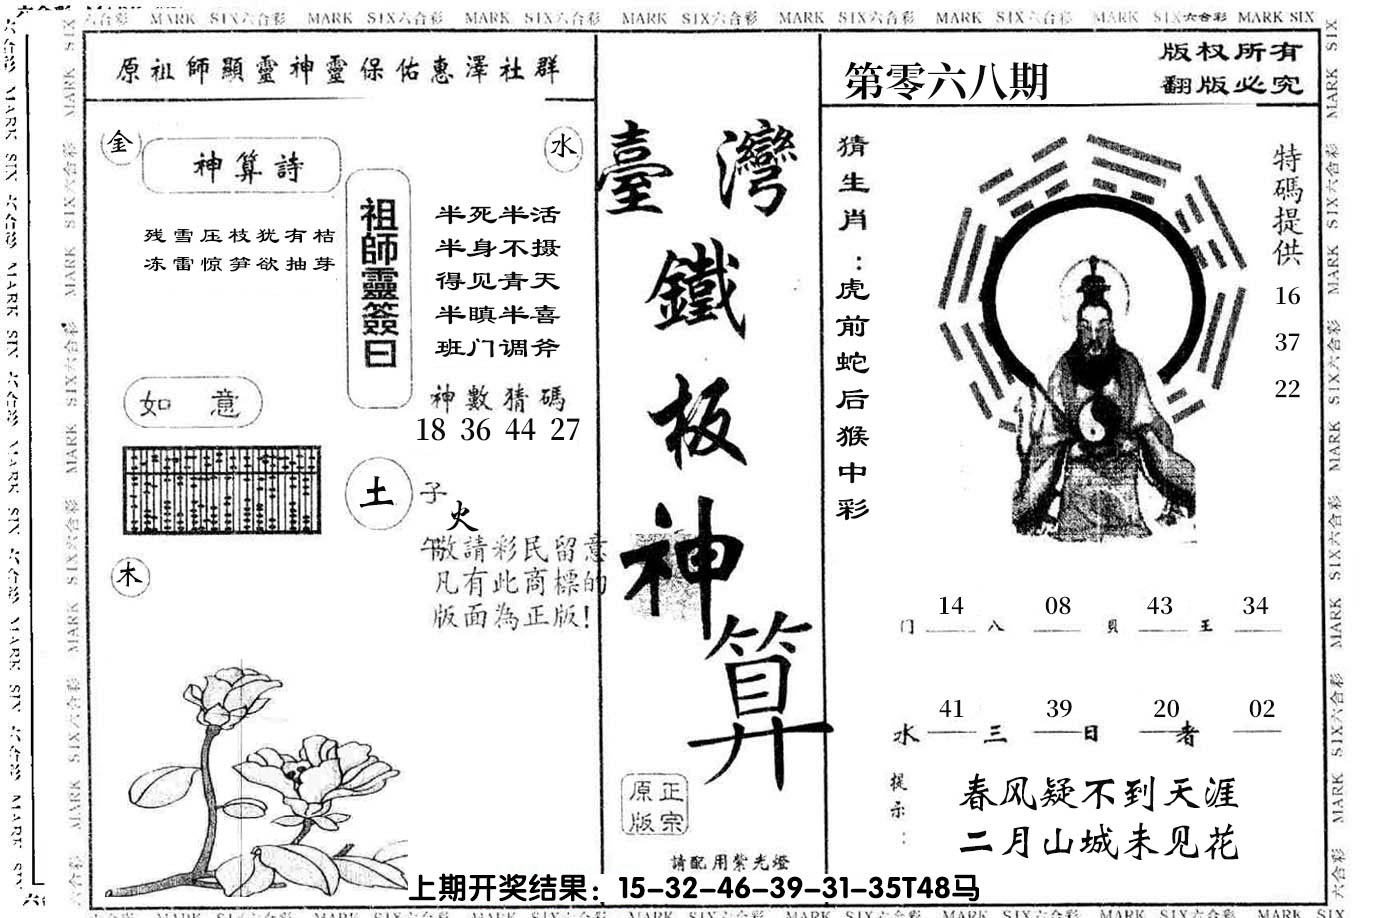 MARK SIX六合彩 MARK SIX六合彩 MARK SIX六合彩 MARK SIX六合彩 MARK SIX六合彩 MARK SIX六合彩 MARK SIX六合彩 MARK SIX
原祖師顯靈神靈保佑惠澤社群
金
水
神算詩
残雪压枝犹有桔
冻雷惊笋欲抽芽
祖師靈簽曰
半死半活
半身不摄
得见青天
半瞋半喜
班门调斧
神數猜碼
18 36 44 27
如 意
土
子
火
午
木
敬請彩民留意
凡有此商標的
版面為正版!
臺灣
鐵
板
神
算
正宗
原版
請配用紫光燈
第零六八期
版权所有
翻版必究
猜生肖:虎前蛇后猴中彩
特碼提供
16
37
22
14 08 43 34
门 八 貝 王
41 39 20 02
水 三 日 者
提示:
春风疑不到天涯
二月山城未见花
上期开奖结果：15-32-46-39-31-35T48马